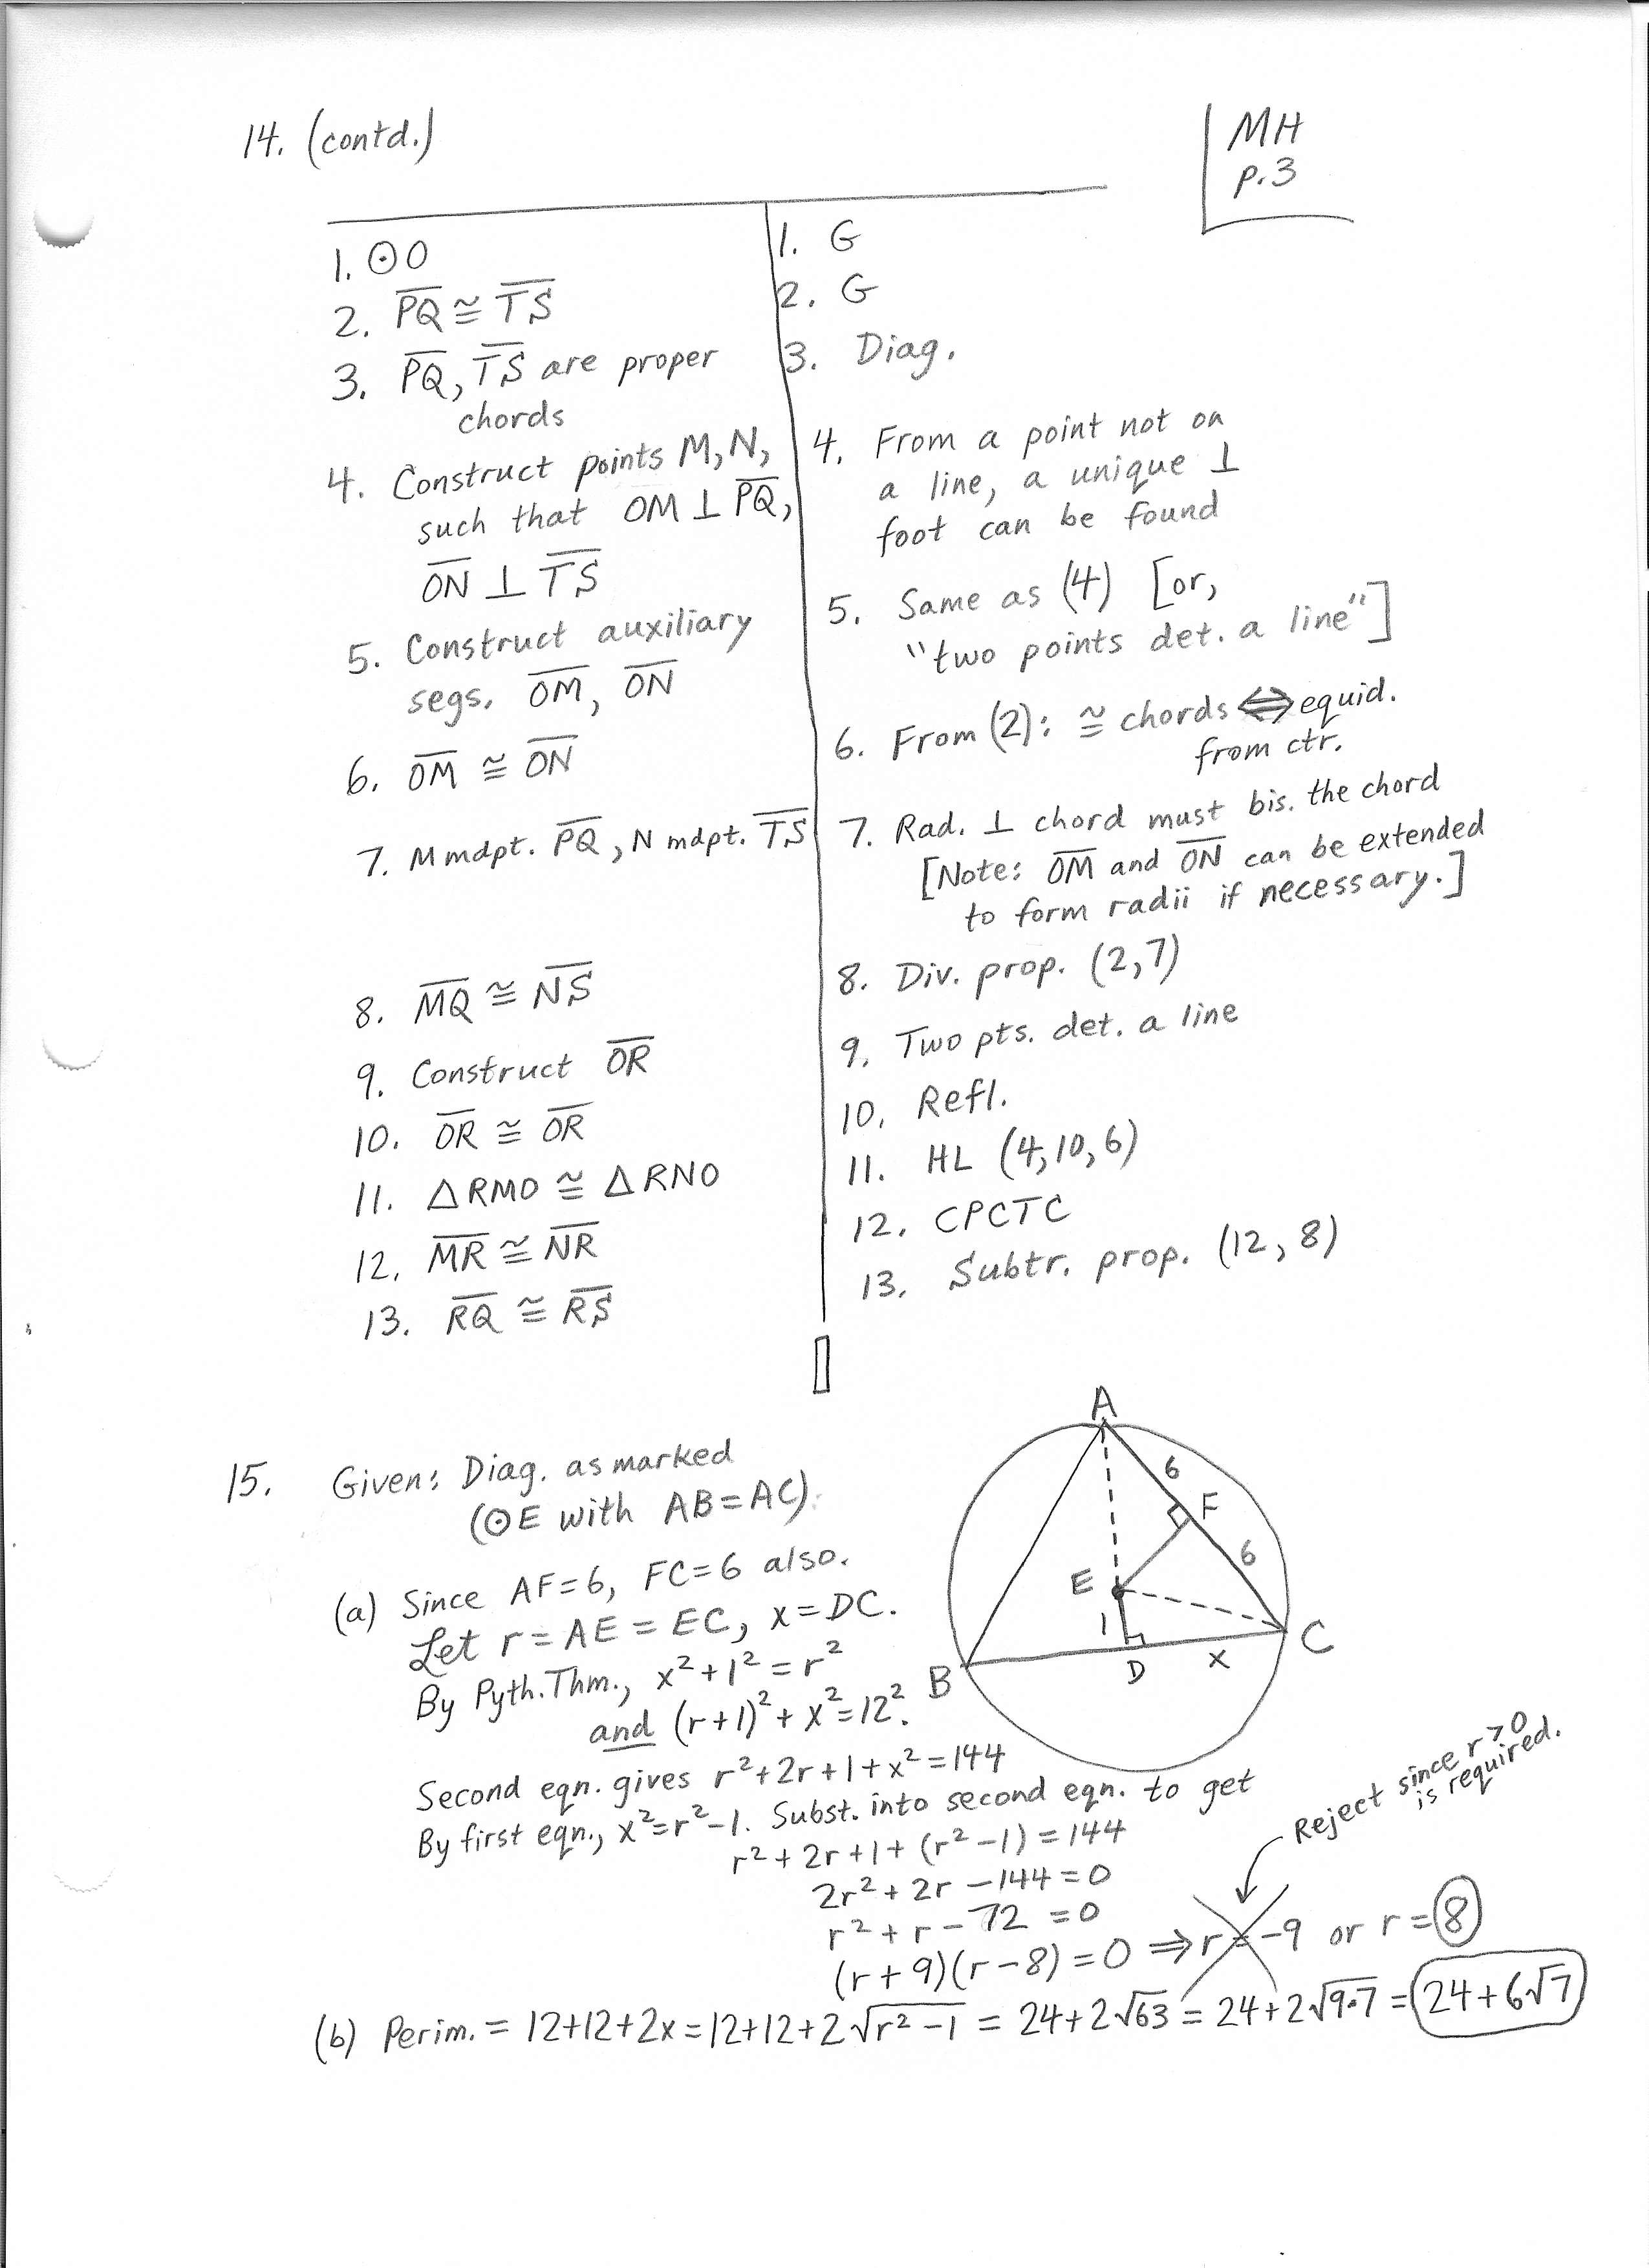 14. (contd.)
MH
p.3
1. ⊙O
1. G
2. P̅Q̅ ≅ T̅S̅
2. G
3. P̅Q̅, T̅S̅ are proper
chords
3. Diag.
4. Construct points M, N,
such that OM ⊥ P̅Q̅,
O̅N̅ ⊥ T̅S̅
4. From a point not on
a line, a unique ⊥
foot can be found
5. Construct auxiliary
segs. O̅M̅, O̅N̅
5. Same as (4) [or,
"two points det. a line"]
6. O̅M̅ ≅ O̅N̅
6. From (2): ≅ chords ⇔ equid.
from ctr.
7. M mdpt. P̅Q̅, N mdpt. T̅S̅
7. Rad. ⊥ chord must bis. the chord
[Note: O̅M̅ and O̅N̅ can be extended
to form radii if necessary.]
8. M̅Q̅ ≅ N̅S̅
8. Div. prop. (2,7)
9. Construct O̅R̅
9. Two pts. det. a line
10. O̅R̅ ≅ O̅R̅
10. Refl.
11. △RMO ≅ △RNO
11. HL (4,10,6)
12. M̅R̅ ≅ N̅R̅
12. CPCTC
13. R̅Q̅ ≅ R̅S̅
13. Subtr. prop. (12, 8)
15. Given: Diag. as marked
(⊙E with AB=AC).
A
6
F
6
E
1
B
D
x
C
(a) Since AF=6, FC=6 also.
Let r = AE = EC, x = DC.
By Pyth. Thm., x²+1²=r²
and (r+1)²+x²=12².
Second eqn. gives r²+2r+1+x²=144
By first eqn., x²=r²-1. Subst. into second eqn. to get
r²+2r+1+(r²-1)=144
2r²+2r-144=0
r²+r-72=0
(r+9)(r-8)=0 ⇒ r=-9 or r=8
Reject since r>0
is required.
(b) Perim. = 12+12+2x = 12+12+2√(r²-1) = 24+2√63 = 24+2√(9·7) = 24+6√7